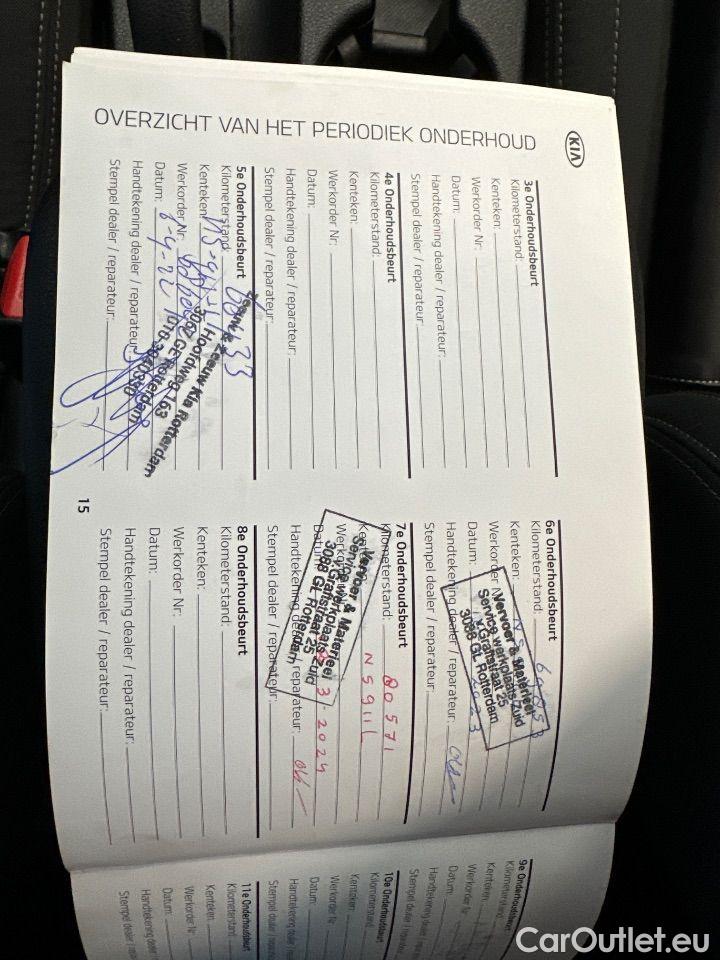 OVERZICHT VAN HET PERIODIEK ONDERHOUD
KIA
3e Onderhoudsbeurt
Kilometerstand:
Kenteken:
Werkorder Nr:
Datum:
Handtekening dealer / reparateur:
Stempel dealer / reparateur:
4e Onderhoudsbeurt
Kilometerstand:
Kenteken:
Werkorder Nr:
Datum:
Handtekening dealer / reparateur:
Stempel dealer / reparateur:
5e Onderhoudsbeurt
Kilometerstand:
Kenteken:
Werkorder Nr:
Datum:
Handtekening dealer / reparateur:
Stempel dealer / reparateur:
Zeeuw Kia Rotterdam
Hoofdweg
Rotterdam
15
6e Onderhoudsbeurt
Kilometerstand:
Kenteken:
Werkorder
Datum:
Handtekening dealer / reparateur:
Stempel dealer / reparateur:
Vervoer & Materieel
Service werkplaats Zuid
25
3088 GL Rotterdam
7e Onderhoudsbeurt
Kilometerstand: 80571
NS911L
2024
Handtekening dealer / reparateur:
Stempel dealer / reparateur:
Vervoer & Materieel
Service werkplaats Zuid
25
3088 GL Rotterdam
8e Onderhoudsbeurt
Kilometerstand:
Kenteken:
Werkorder Nr:
Datum:
Handtekening dealer / reparateur:
Stempel dealer / reparateur:
9e Onderhoudsbeurt
Kilometerstand:
Kenteken:
Werkorder Nr:
Datum:
Handtekening dealer /
Stempel dealer /
10e Onderhoudsbeurt
Kilometerstand:
Kenteken:
Werkorder Nr:
Datum:
Handtekening dealer /
Stempel dealer /
11e Onderhoudsbeurt
Kilometerstand:
Kenteken:
Werkorder Nr:
Datum:
Handtekening dealer
Stempel dealer /
CarOutlet.eu